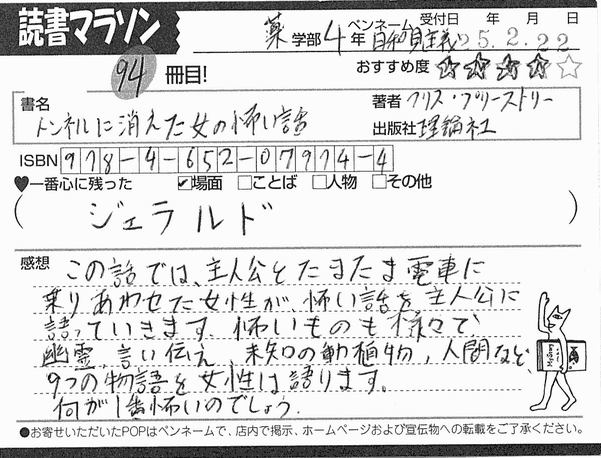 読書マラソン
94 冊目!
薬 学部 4 年 ペンネーム 自称負け主義 受付日 年 月 日
25.2.22
おすすめ度 ★★★★☆
書名 トンネルに消えた女の怖い話
著者 クリス・プリーストリー
出版社 理論社
ISBN 978-4-652-07974-4
♥一番心に残った ☑場面 □ことば □人物 □その他
( ジェラルド )
感想 この話では、主人公とたまたま電車に
乗りあわせた女性が、怖い話を主人公に
語っていきます。怖いものも様々で、
幽霊、言い伝え、未知の動植物、人間など、
9つの物語を女性は語ります。
何が1番怖いのでしょう。
●お寄せいただいたPOPはペンネームで、店内で掲示、ホームページおよび宣伝物への転載をご了承ください。